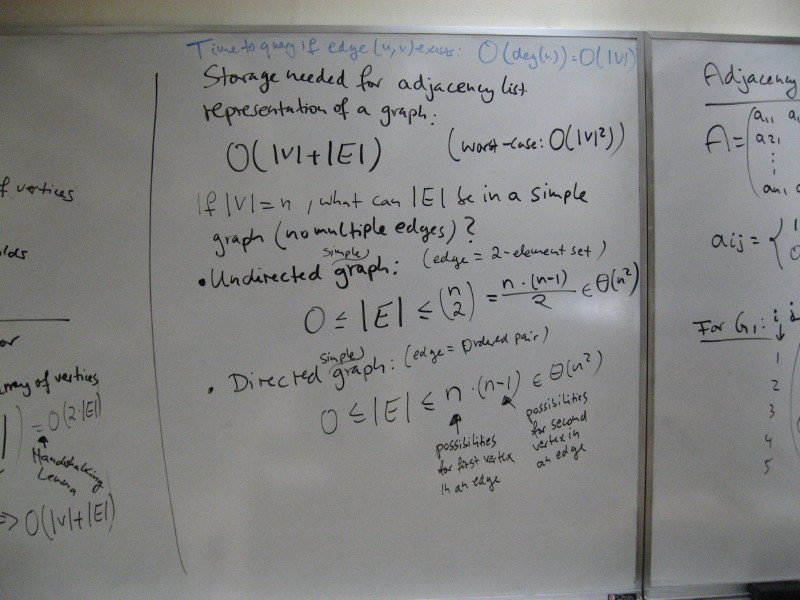 of vertices
or
array of vertices
= O(2·|E|)
Handshaking
Lemma
=> O(|V|+|E|)
Time to query if edge (u,v) exists: O(deg(u)) = O(|V|)
Storage needed for adjacency list
representation of a graph:
O(|V|+|E|) (worst-case: O(|V|²))
If |V|=n, what can |E| be in a simple
graph (no multiple edges)?
simple
• Undirected graph: (edge = 2-element set)
0 ≤ |E| ≤ (n 2) = n·(n-1)/2 ∈ Θ(n²)
simple
• Directed graph: (edge = ordered pair)
0 ≤ |E| ≤ n·(n-1) ∈ Θ(n²)
possibilities
for first vertex
in an edge
possibilities
for second
vertex in
an edge
Adjacency
A = (a11
a21
⋮
an1
aij = { 1
0
For G1: i
1
2
3
4
5